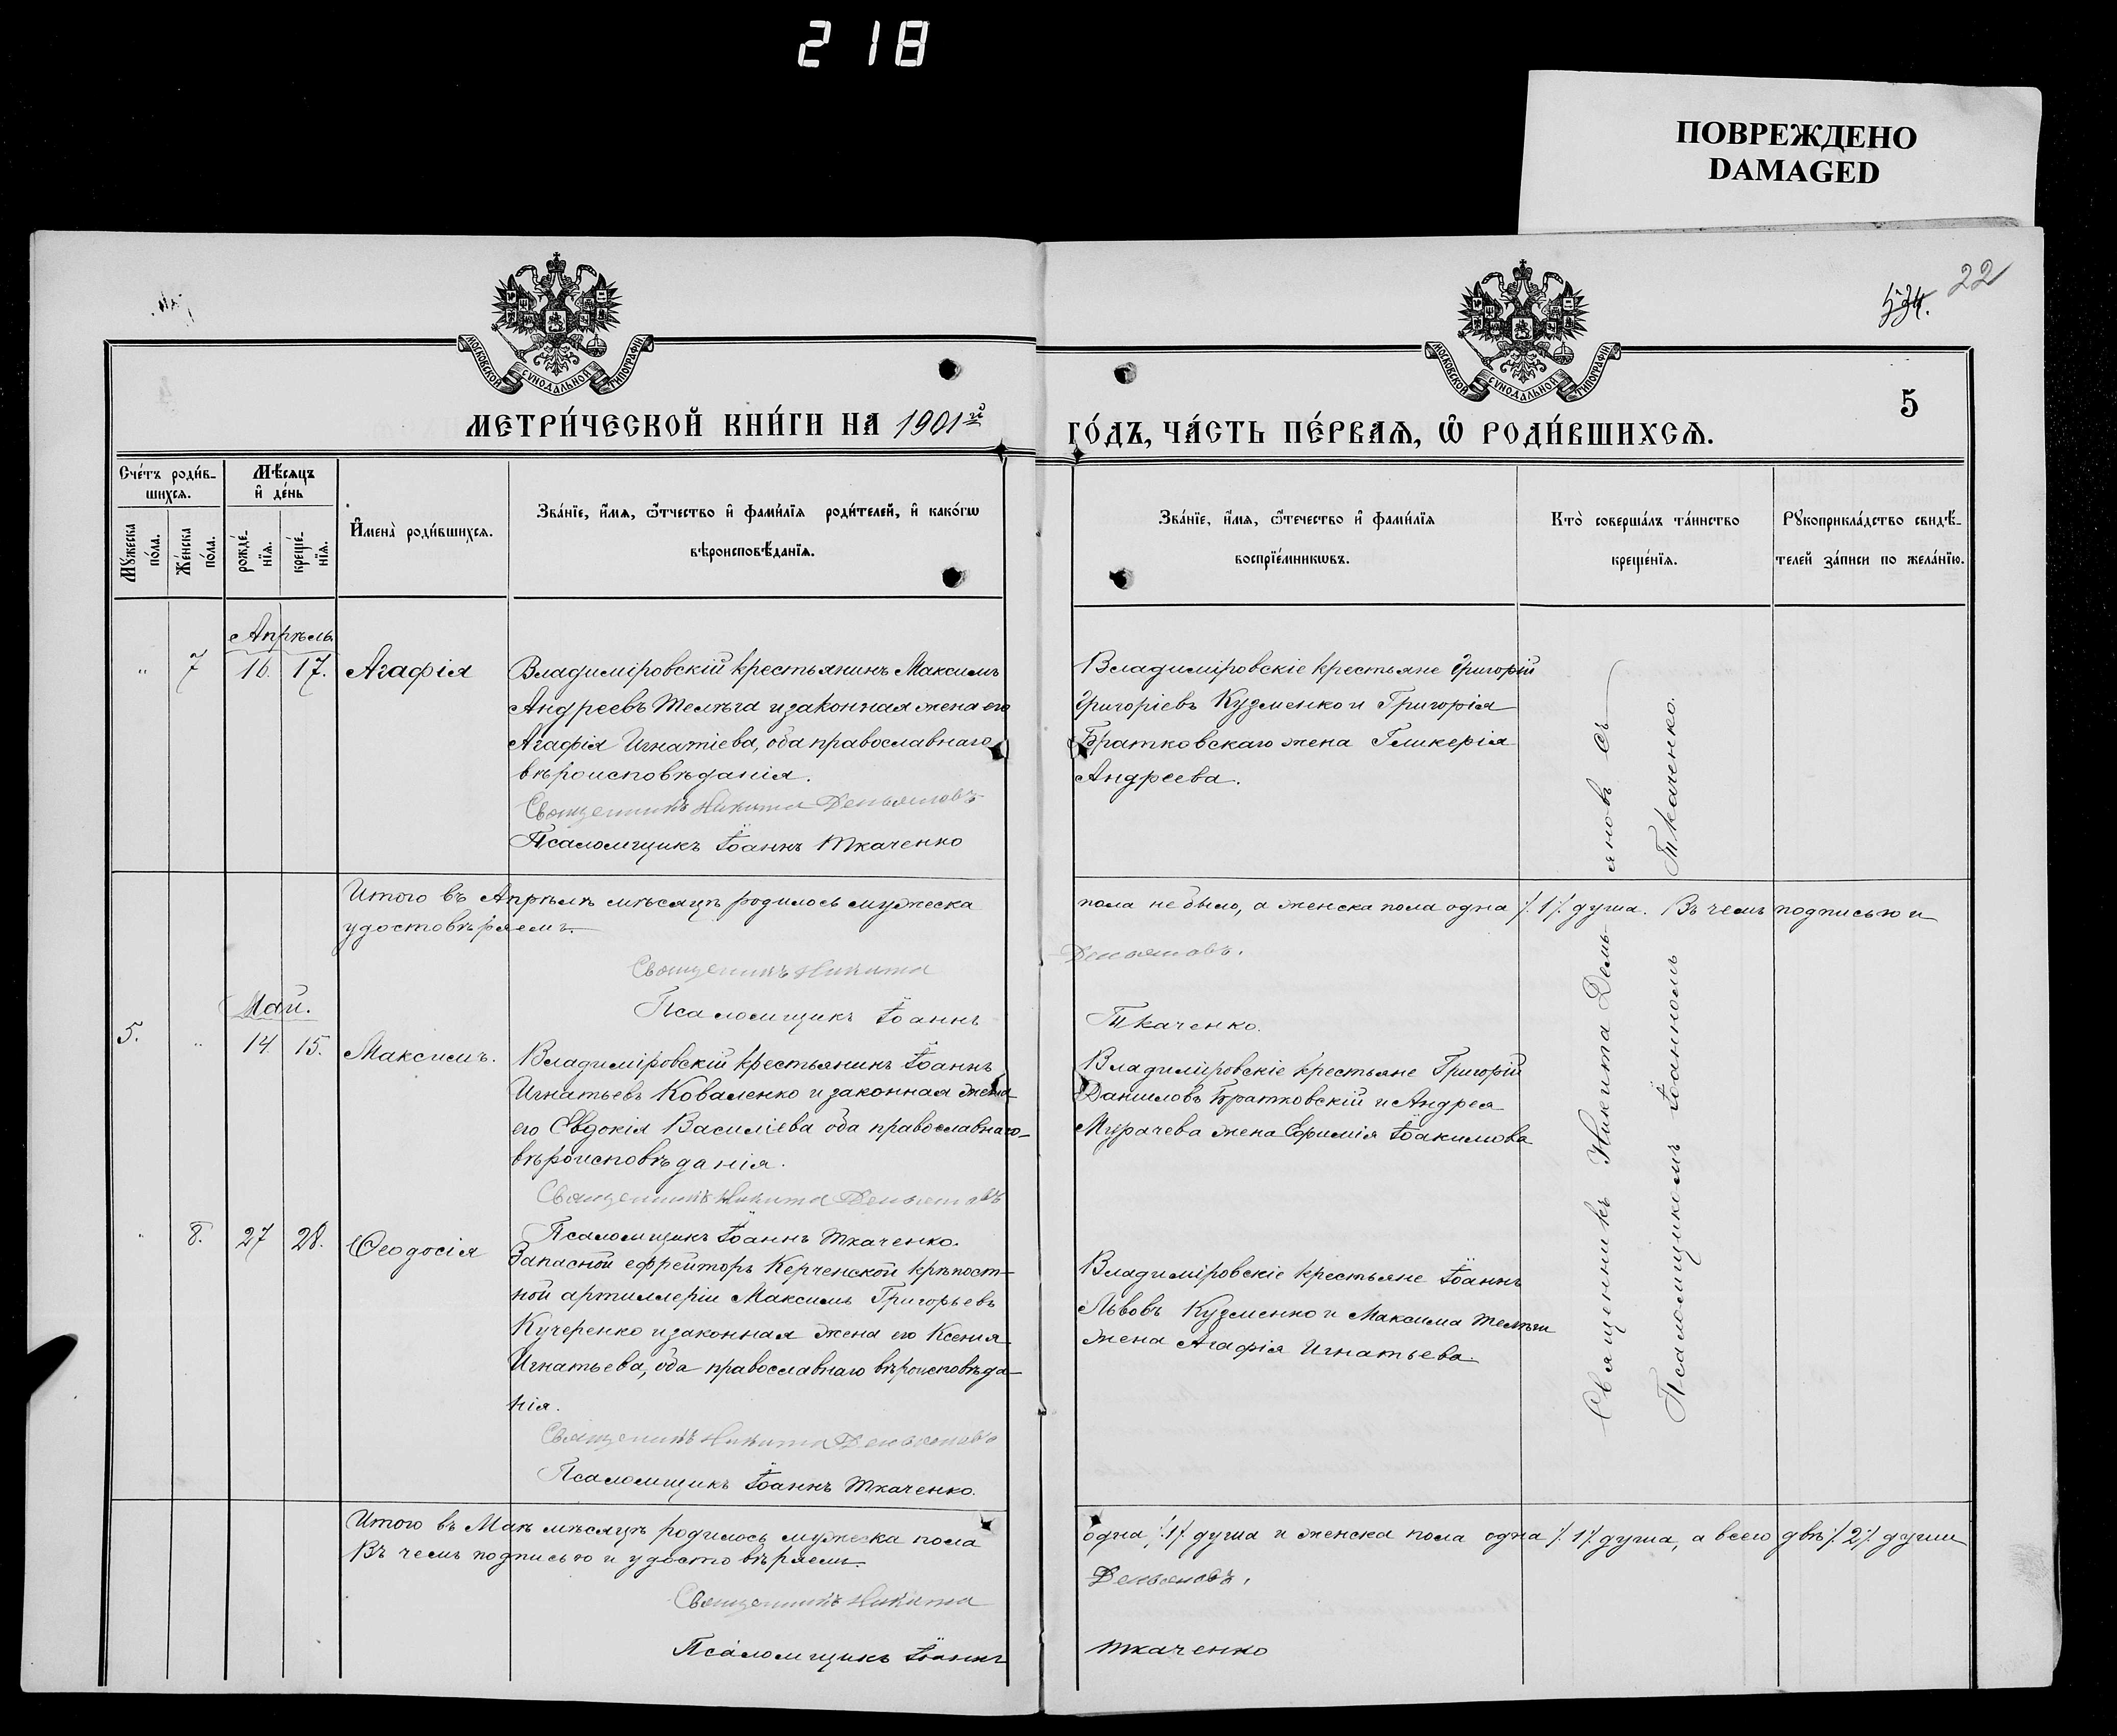 218
ПОВРЕЖДЕНО
DAMAGED
22
534.
МОСКОВСКОЙ СѴНОДАЛЬНОЙ ТИПОГРАФІИ
МОСКОВСКОЙ СѴНОДАЛЬНОЙ ТИПОГРАФІИ
5
МЕТРИ́ЧЕСКОЙ КНИ́ГИ НА 1901й
ГО́ДЪ, ЧА́СТЬ ПЕ́РВАѦ, Ѡ҆ РОДИ́ВШИХСѦ.
Сче́тъ роди́в-
шихсѧ.
Мꙋ́жеска по́ла.
Же́нска по́ла.
Мѣ́сѧцъ
и҆ де́нь
рожде́-нїѧ.
креще́-нїѧ.
И҆мена̀ роди́вшихсѧ.
Зва́нїе, и҆́мѧ, ѻ҆́тчество и҆ фами́лїѧ роди́телей, и҆ како́гѡ
вѣроисповѣ́данїѧ.
Зва́нїе, и҆́мѧ, ѻ҆те́чество и҆ фами́лїѧ
воспрїе́мникѡвъ.
Кто̀ соверша́лъ та́инство
креще́нїѧ.
Рꙋкоприкла́дство свидѣ́-
телей за́писи по жела́нїю.
Апрѣль
" 7 16. 17. Агафія
Владиміровскій крестьянинъ Максимъ
Андреевъ Телѣга и законная жена его
Агафія Игнатіева, оба православнаго
вѣроисповѣданія.
Священникъ Никита Демьяновъ
Псаломщикъ Іоаннъ Ткаченко
Владиміровскіе крестьяне Григорій
Григоріевъ Кузменко и Григорія
Братковскаго жена Гликерія
Андреева.
Священникъ Никита Демьяновъ съ
Псаломщикомъ Іоанномъ Ткаченко.
Итого въ Апрѣлѣ мѣсяцѣ родилось мужеска
пола не было, а женска пола одна /.1/. душа. Въ чемъ подписью и
удостовѣряемъ.
Священникъ Никита
Демьяновъ.
Псаломщикъ Іоаннъ
Ткаченко.
Май.
5. " 14. 15. Максимъ.
Владиміровскій крестьянинъ Іоаннъ
Игнатьевъ Коваленко и законная жена
его Евдокія Василіева оба православнаго
вѣроисповѣданія.
Священникъ Никита Демьяновъ
Псаломщикъ Іоаннъ Ткаченко.
Владиміровскіе крестьяне Григорій
Даниловъ Братковскій и Андрея
Мурачева жена Ефимія Іоакимова
" 8. 27 28. Ѳеодосія
Запасной ефрейторъ Керченской крѣпост-
ной артиллеріи Максимъ Григорьевъ
Кучеренко и законная жена его Ксенія
Игнатьева, оба православнаго вѣроисповѣда-
нія.
Священникъ Никита Демьяновъ
Псаломщикъ Іоаннъ Ткаченко.
Владиміровскіе крестьяне Іоаннъ
Львовъ Кузменко и Максима Телѣги
жена Агафія Игнатьева.
Итого въ Маѣ мѣсяцѣ родилось мужеска пола
одна /.1/. душа и женска пола одна /.1/. душа, а всего двѣ /.2/. души
Въ чемъ подписью и удостовѣряемъ.
Священникъ Никита
Демьяновъ.
Псаломщикъ Іоаннъ
Ткаченко